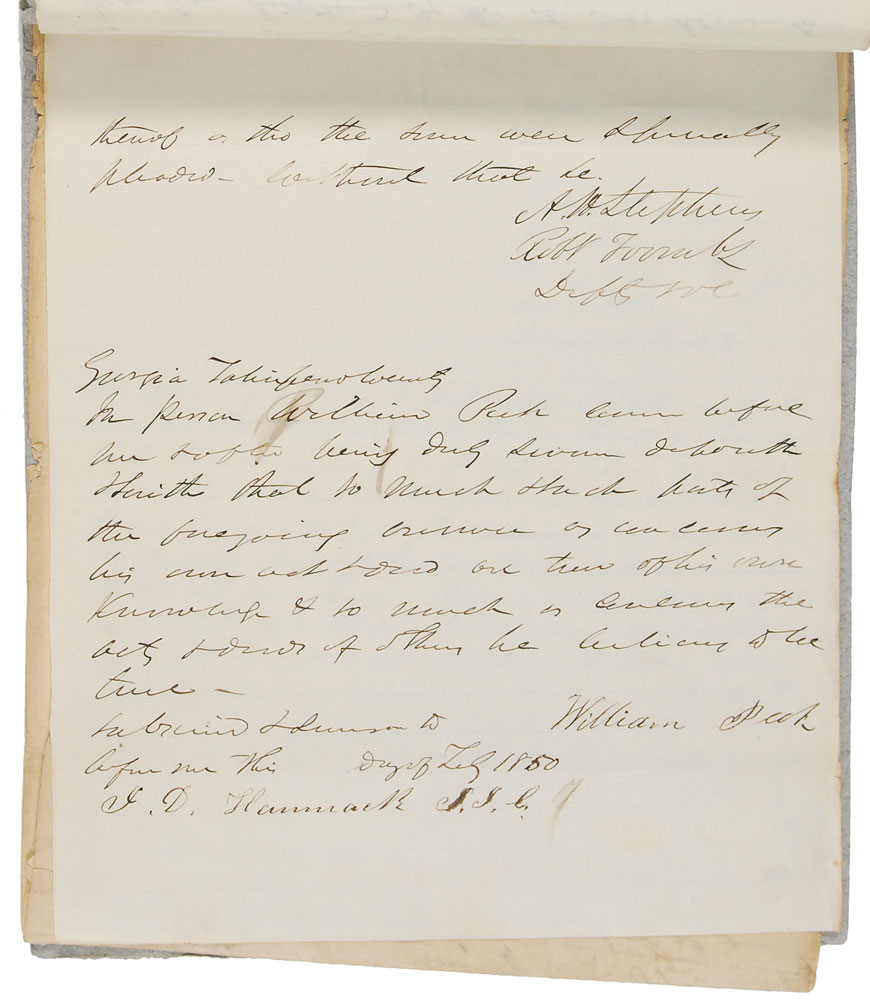 thereof as tho the same were & formally
pleaded – without that &c.
A. H. Stephens
Robt Toombs
Defts sol
Georgia Taliaferro County
In person William Peek came before
me & after being duly sworn deposeth
& saith that so much & such parts of
the foregoing answer as concerns
his own act & deed are true of his own
Knowledge & so much as concerns the
acts & deeds of others he believes to be
true –
subscribed & sworn to William Peek
before me this day of Feby 1850
J. D. Hammack J. I. C.